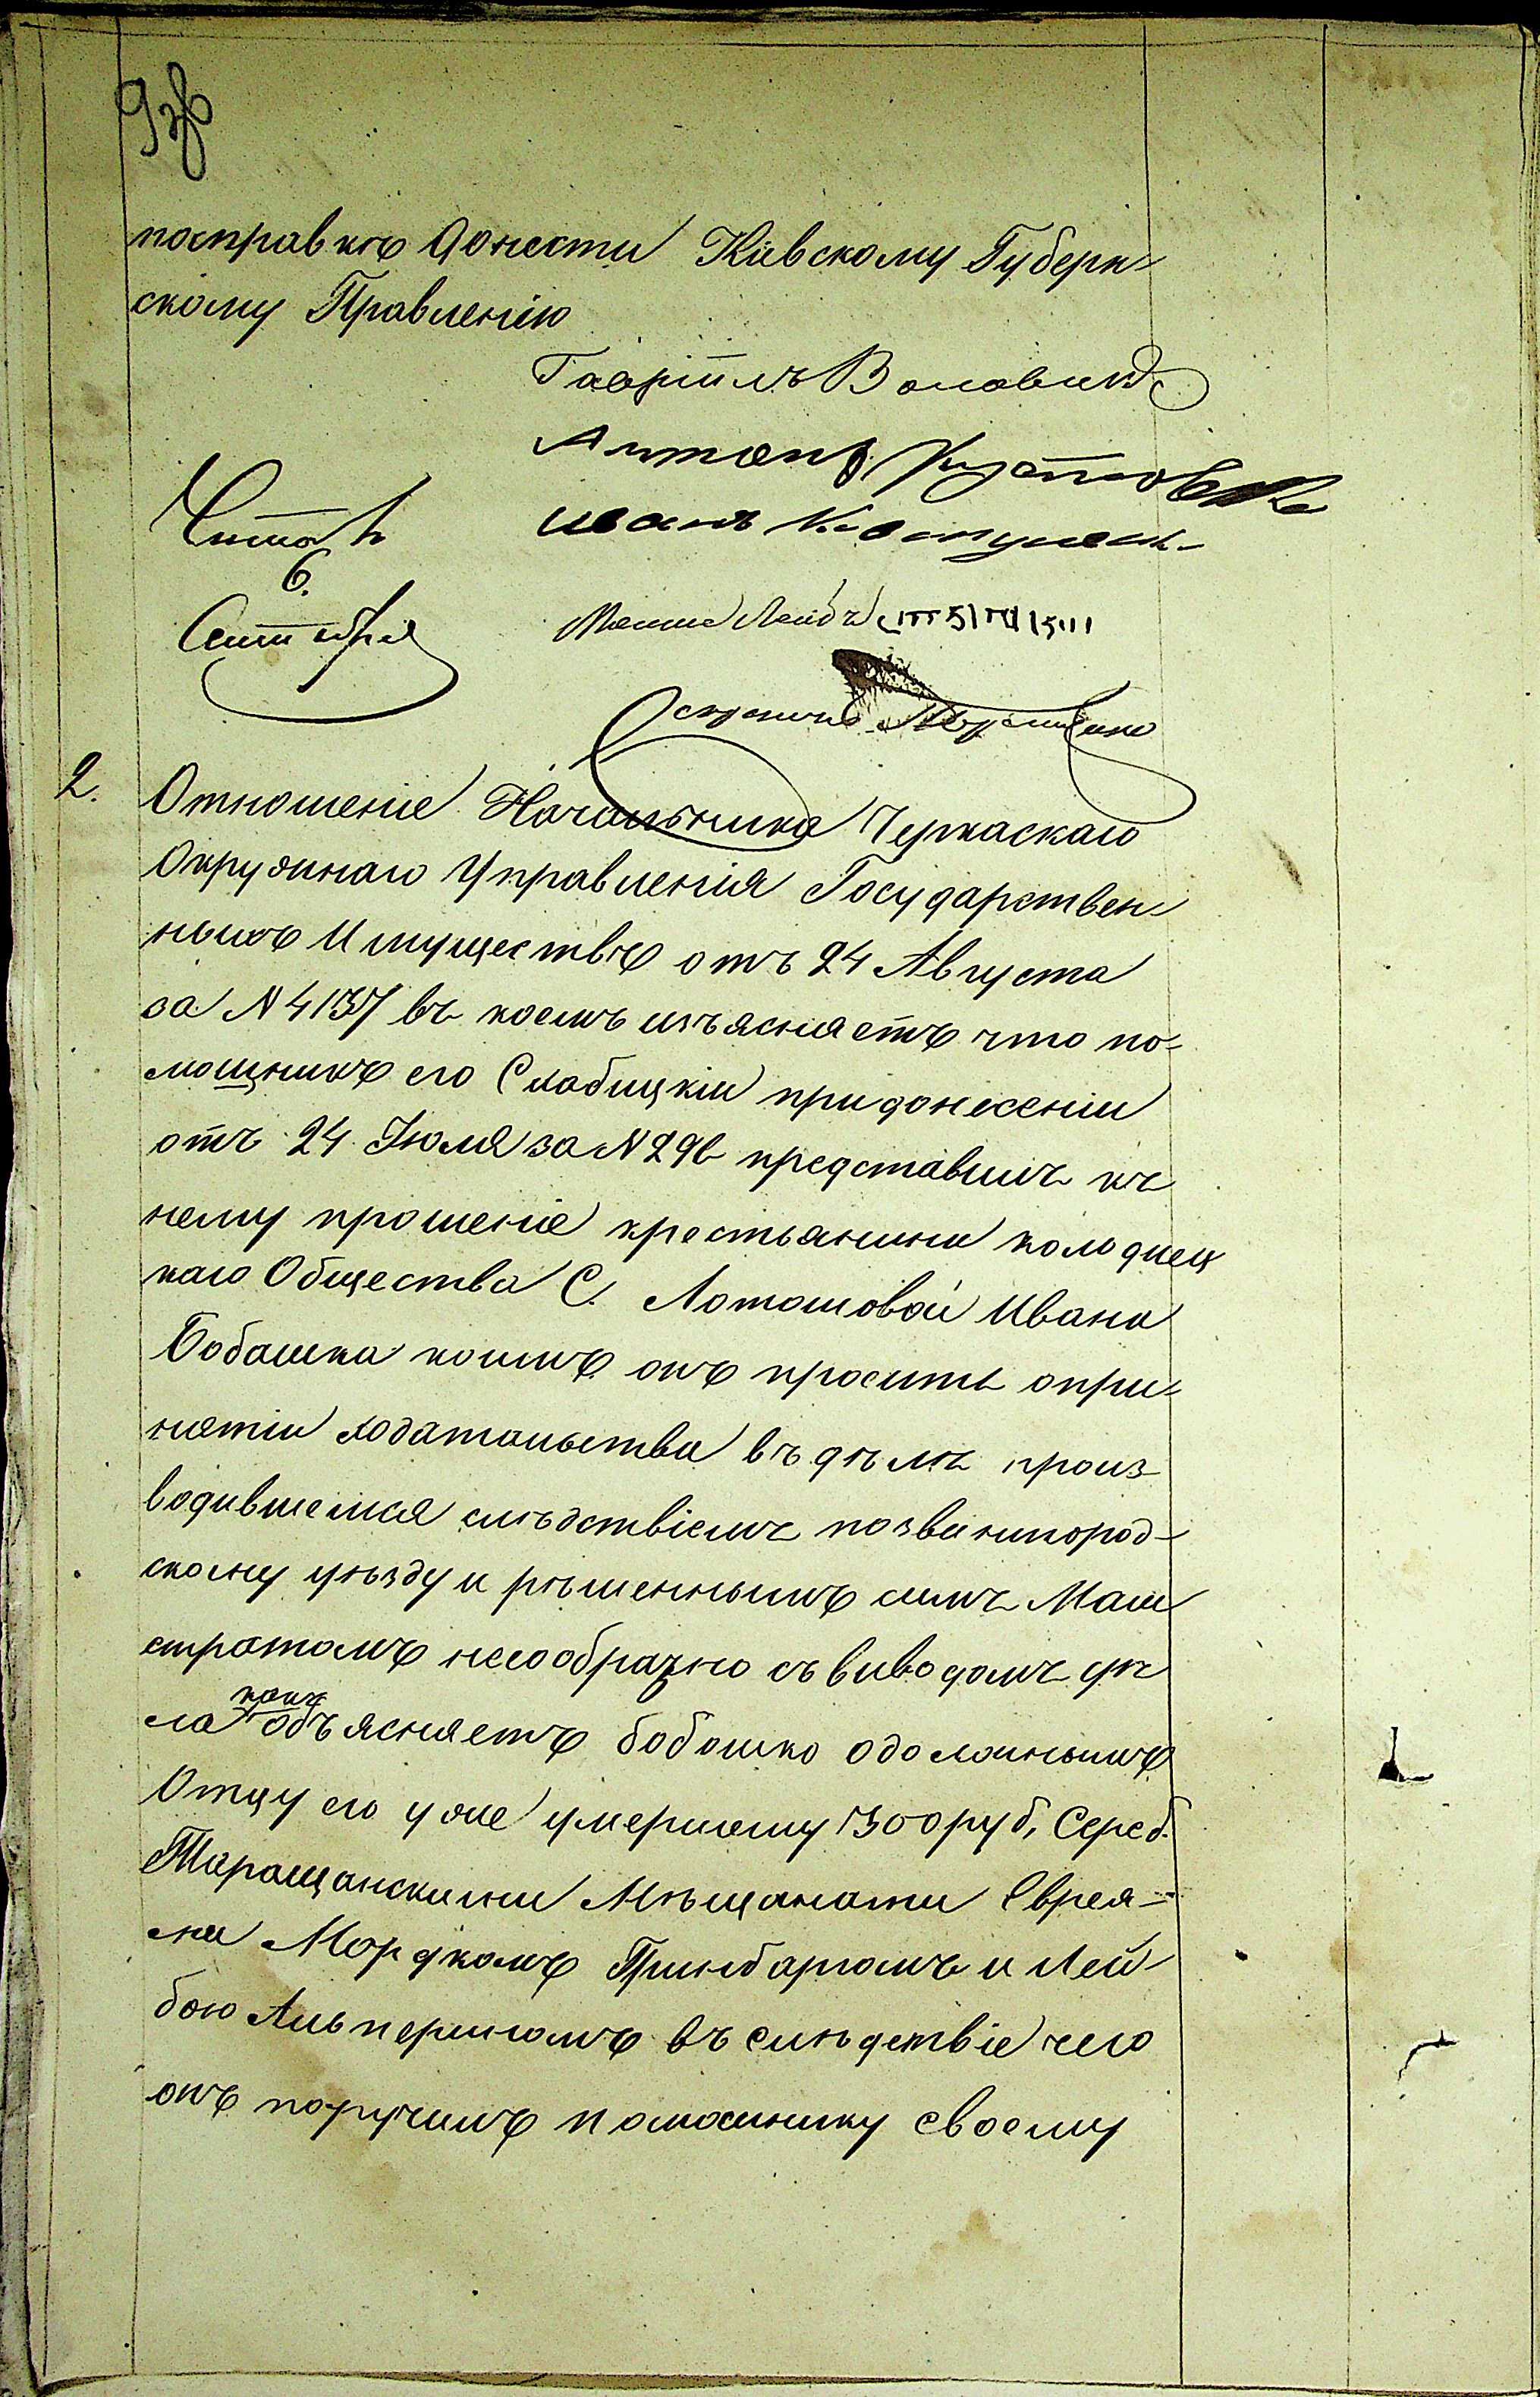 посправкѣ донести Кіевскому Губерн-
скому Правленію
Гавріилъ Воловикъ
Антонъ
Иванъ
Читалъ
6.
Сентября
Мошко Лейбъ
2. Отношеніе Начальника Черкаскаго
Окружнаго Управленія Государствен-
ныхъ Имуществъ отъ 24 Августа
за N 4137 въ коемъ изъясняетъ что по-
мощникъ его Слабицкіи придонесеніи
отъ 24 Июля за N 296 представилъ къ
нему прошеніе крестьянина колоднец
каго Общества С. Лотошовой Ивана
Бобашка коимъ онъ проситъ опри-
нятіи ходатольства въ дѣлѣ произ-
водившемся слѣдствіемъ позвенигород-
скому уѣзду и рѣшенныимъ симъ Маги
стратомъ несообразно съ виводомъ дѣ
ла какъ объясняетъ бобошко одолжныимъ
Отцу его уже умершему 1300 руб, Сереб.
Таращанскими Мѣщанами Еврея-
ми Мордкомъ Гринбаргомъ и Лей-
бою Альпериномъ въ слѣдствіе чего
онъ поручилъ помошнику своему